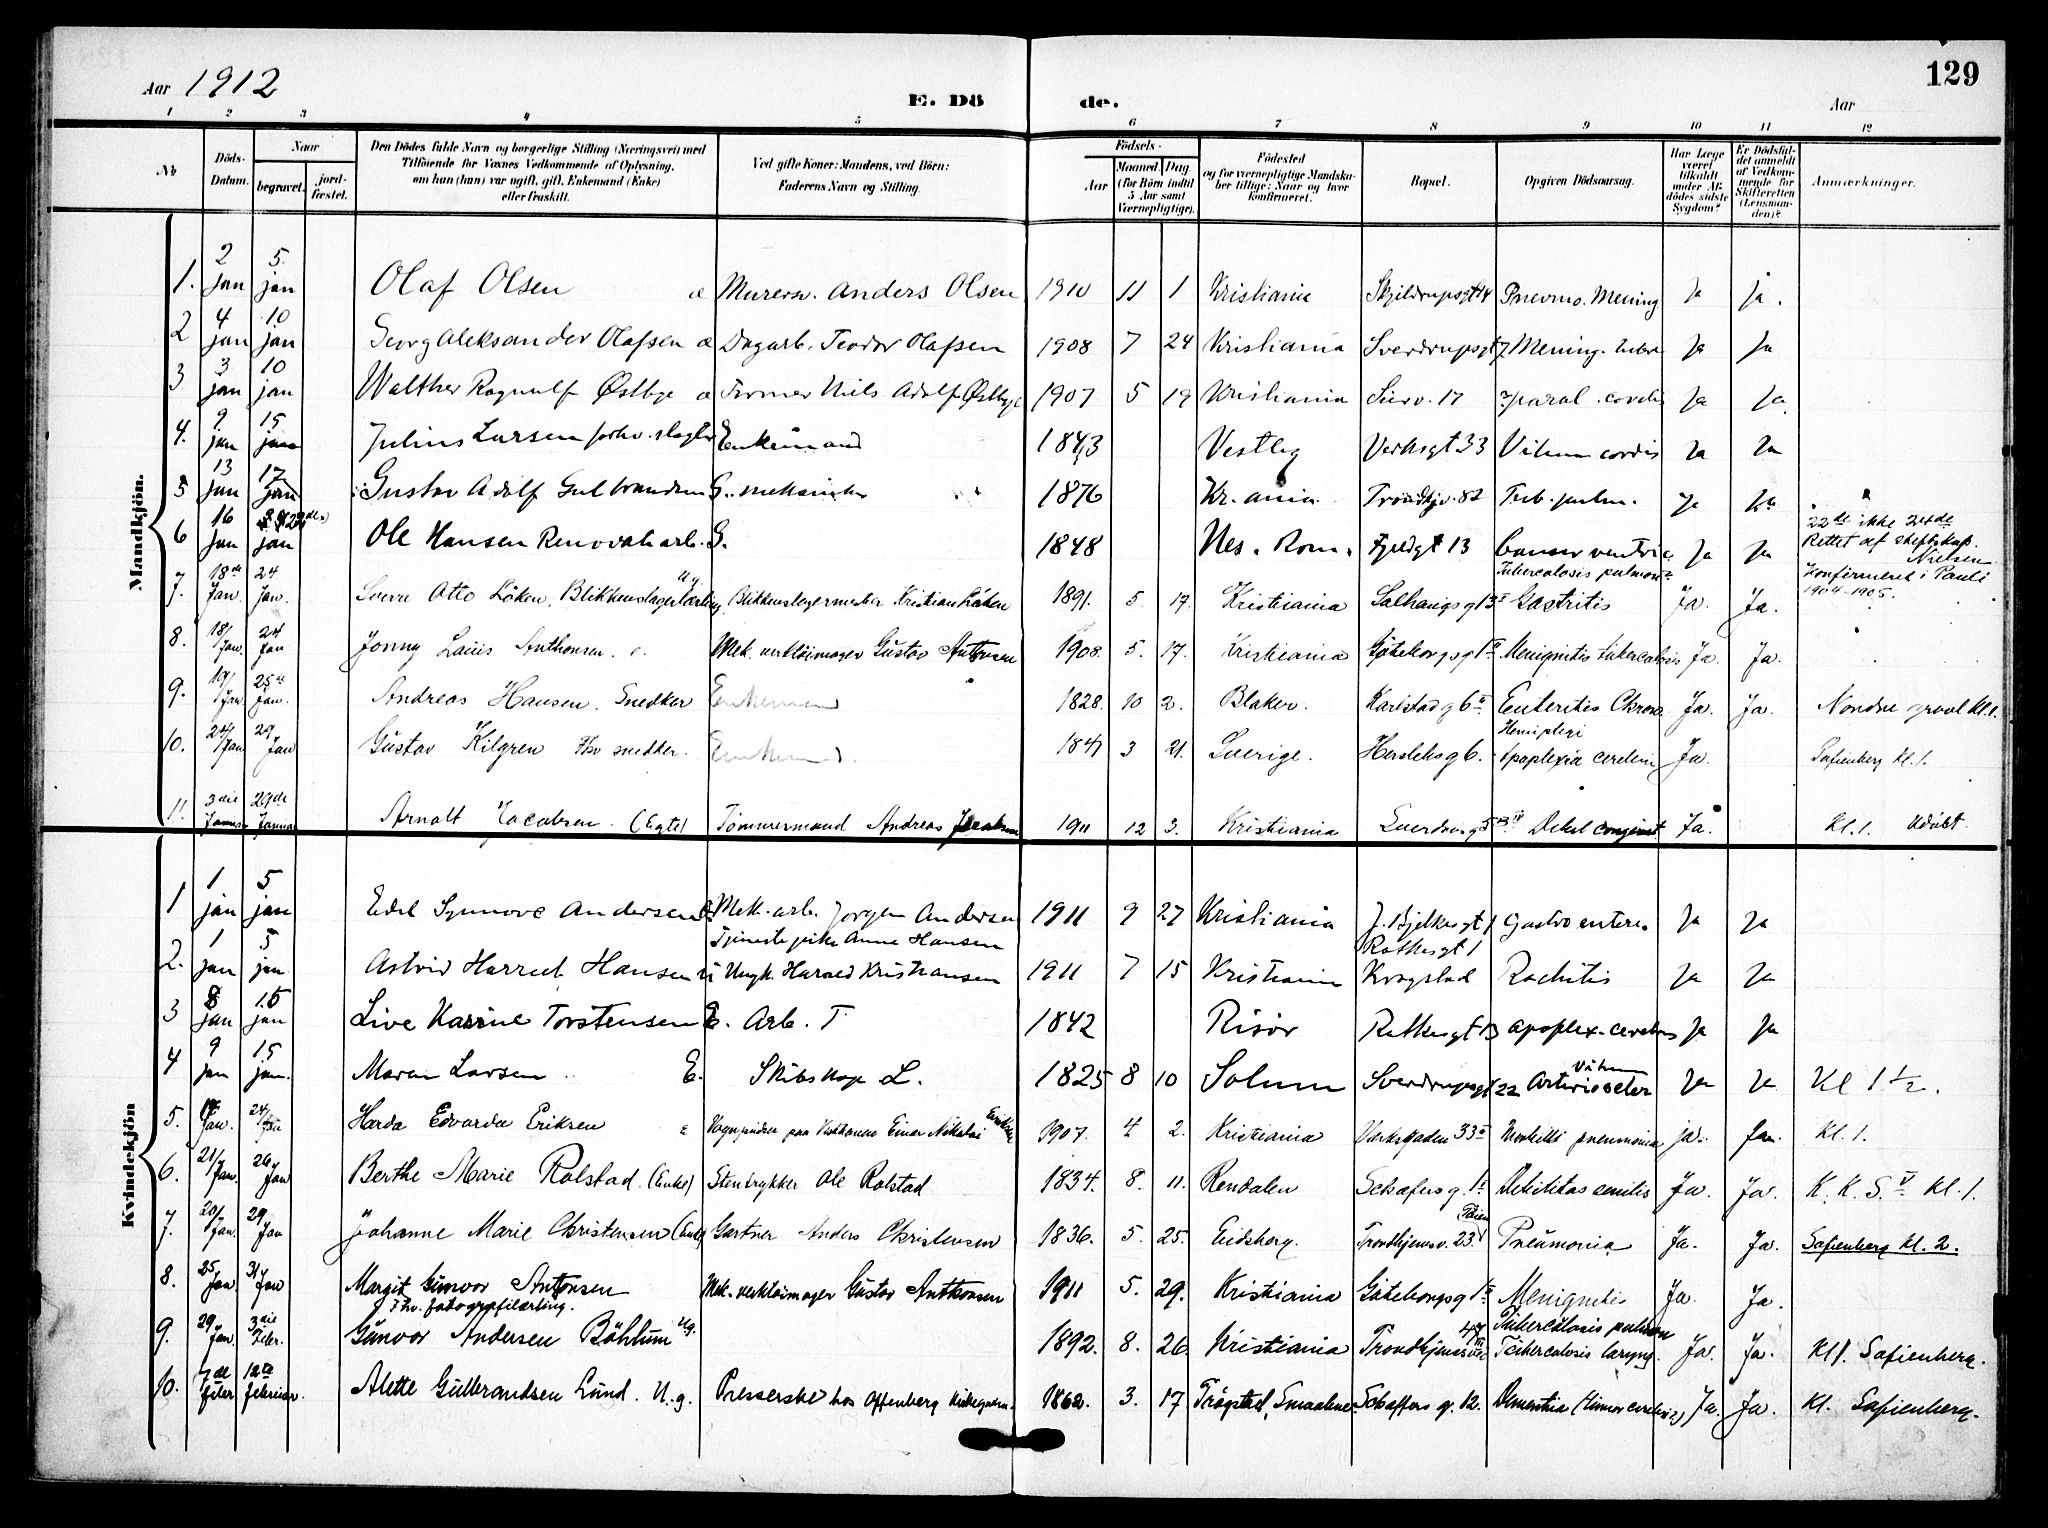 129
Aar 1912
E. Dö de.
Aar
1 2 3 4 5 6 7 8 9 10 11 12
No
Döds-Datum.
Naar
begravet.
jord-fæstet.
Den Dödes fulde Navn og borgerlige Stilling (Næringsvei) med
Tilföiende for Voxnes Vedkommende af Oplysning,
om han (hun) var ugift, gift, Enkemand (Enke)
eller fraskilt.
Ved gifte Koner: Mandens, ved Börn:
Faderens Navn og Stilling.
Födsels-
Aar
Maaned Dag
(for Börn indtil
5 Aar samt
Værnepligtige).
Födested
og for værnepligtige Mandska-
ber tillige: Naar og hvor
konfirmeret.
Bopæl.
Opgiven Dödsaarsag.
Har Læge
været
tilkaldt
under Af-
dödes sidste
Sygdom?
Er Dödsfal-
det anmeldt
af Vedkom-
mende for
Skifteretten
(Lensman-
den)?
Anmærkninger.
Mandkjön.
1. 2 jan 5 jan Olaf Olsen Anders Olsen 1910 11 1 Kristiania Pnevmo. Mening Ja ja.
2 4 jan 10 jan Georg Aleksander Olafsen Dagarb. Teodor Olafsen 1908 7 24 Kristiania Sverdrupsgt 7 Mening. Ja Ja
3 3 jan 10 jan Walther Ragnulf Østbye Niels Adolf Østbye 1907 5 19 Kristiania 17 paral. cordis Ja Ja
4. 9 jan 15 jan Julius Larsen forhv. slagter Enkemand 1843 Vestby Verksgt 33 Vitium cordis Ja Ja
5 13 jan 17 jan Gustav Adolf Gulbrandsen G. 1876 Kr.ania Trondhjv. 82 Tub. pulm. Ja Ja
6 16 jan jan Ole Hansen Renovat.arb. G. 1848 Nes. Rom. 13 Cancer ventric Ja Ja 22de ikke 24de
Rettet Nielsen
7. 18de Jan. 24 Jan. Sverre Otto Löken, Blikkenslagerlærling, Ug. Blikkenslagermester Kristian Löken 1891. 5. 17. Kristiania Tuberculosis pulmon.
Gastritis Ja. Ja. Konfirmeret i Pauli
1904-1905.
8. 18/Jan. 24 Jan Jonny Lauis Anthonsen. Mek. verktöimager Gustav Antonsen 1908. 5. 17. Kristiania Göteborgsg 1 II Menignitis tuberculosis Ja. Ja.
9. 19/Jan 25de Jan. Andreas Hansen. Snedker Enkemand 1828. 10 2. Blaker. Karlstadg 6 II Enteritis Chron. Ja. Ja. Nordre gravl Kl. 1.
10. 24/Jan 29 Jan Gustav Kilgren Fhv snedker. Enkemand. 1841 3 21. Sverige. Herslebsg 6. Hemiplegi
Apoplexia cerebri Ja. Sofienberg Kl. 1.
11. 3die Januar 29de Januar Arnolt Jacobsen. (Egte) Tömmermand Andreas Jacobsen 1911 12 3. Kristiania Debil congenit Ja. Kl. 1. Udöbt.
Kvindekjön
1 1 jan 5 jan Edel Synnove Andersen Mek. arb. Jorgen Andersen 1911 9 27 Kristiania J. Bjelkesgt 1 Gastro enterit Ja Ja
2. 1 jan 5 jan Astrid Harriet Hansen Tjenestepike Anna Hansen
Ungk. Harald Kristiansen 1911 7 15 Kristiania Rathkesgt 1
Krogstad Rachitis Ja Ja
3 8 jan 15 jan Live Karine Torstensen E. Arb. T. 1842 Risör Ratkesgt 13 apoplex. cerebri Ja Ja
4 9 jan 15 jan. Maren Larsen E. Skibskap L. 1825 8 10 Solum Sverdrupsgt 22 Vitium
Arterioscler Ja Ja Kl 1 1/2.
5. Jan. 24/Jan Harda Edvarda Eriksen Einar Nikolai Eriksen 1907. 4 2. Kristiania Verksgaden 33 II pneumonia ja. Jan. Kl. 1.
6. 21/Jan. 26 Jan Berthe Marie Rolstad. (Enke) Stentrykker Ole Rolstad 1834. 8. 11. Rendalen Schæfersg. 1 Debilitas senilis Ja. Ja. K. K. S. V Kl. 1.
7. 20/Jan. 29 Jan Johanne Marie Christensen (Enke) Gartner Anders Christensen 1836. 5. 25. Eidsberg. Trondhjemsv. 23. Pneumonia Ja. Ja. Sofienberg Kl. 2.
8. 25 Jan. 31 Jan Margit Gunvor Antonsen Mek. verktöimager Gustav Anthonsen 1911 5. 29. Kristiania Göteborgsg 1 II Menignitis Ja. Ja.
9. 29 Jan. 3die Feber. Fhv. fotografilærling.
Gunvor Andersen Böhlum Ug. 1892. 8. 26 Kristiania Trondhjemsvei 47 Tuberculosis pulmon
Tuberculosis laryng. Ja. Ja. Kl 1. Sofienberg.
10. Feber 12te Februar Alette Gulbrandsen Lund. U.g. Presserske hos Offenberg 1862. 3. 17 Trögstad, Smaalene. Schæffers g. 12. Dementia (Tumor cerebri) Ja. Ja. Kl. Sofienberg.